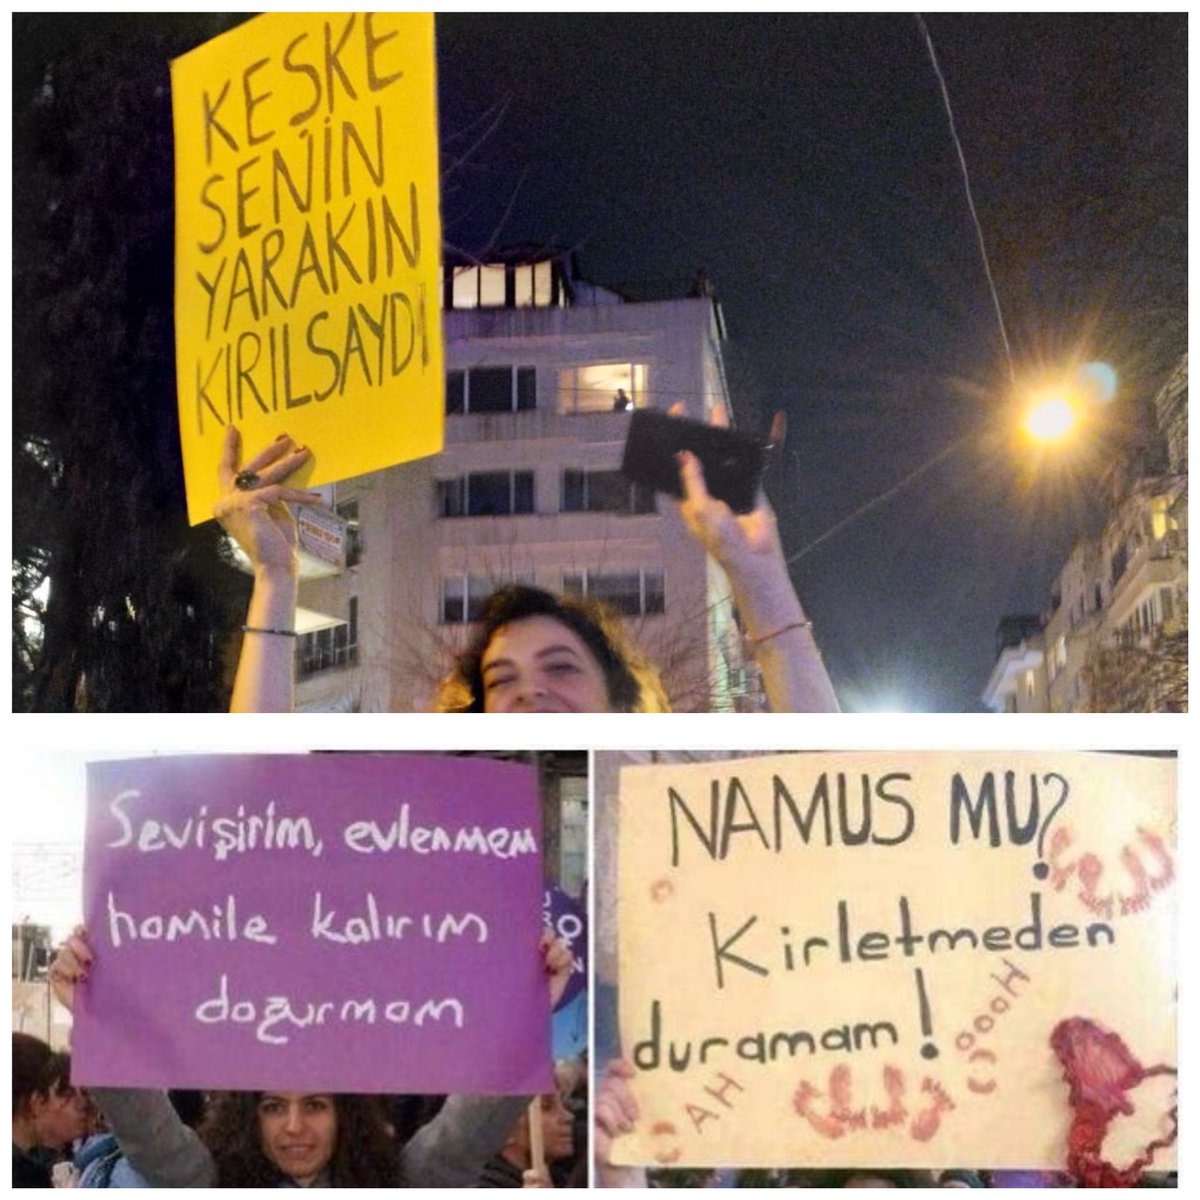 KEŞKE
SENİN
YARAKIN
KIRILSAYDI
Sevişirim, evlenmem
hamile kalırım
doğurmam
NAMUS MU?
Kirletmeden
duramam!
OOOOH
AH